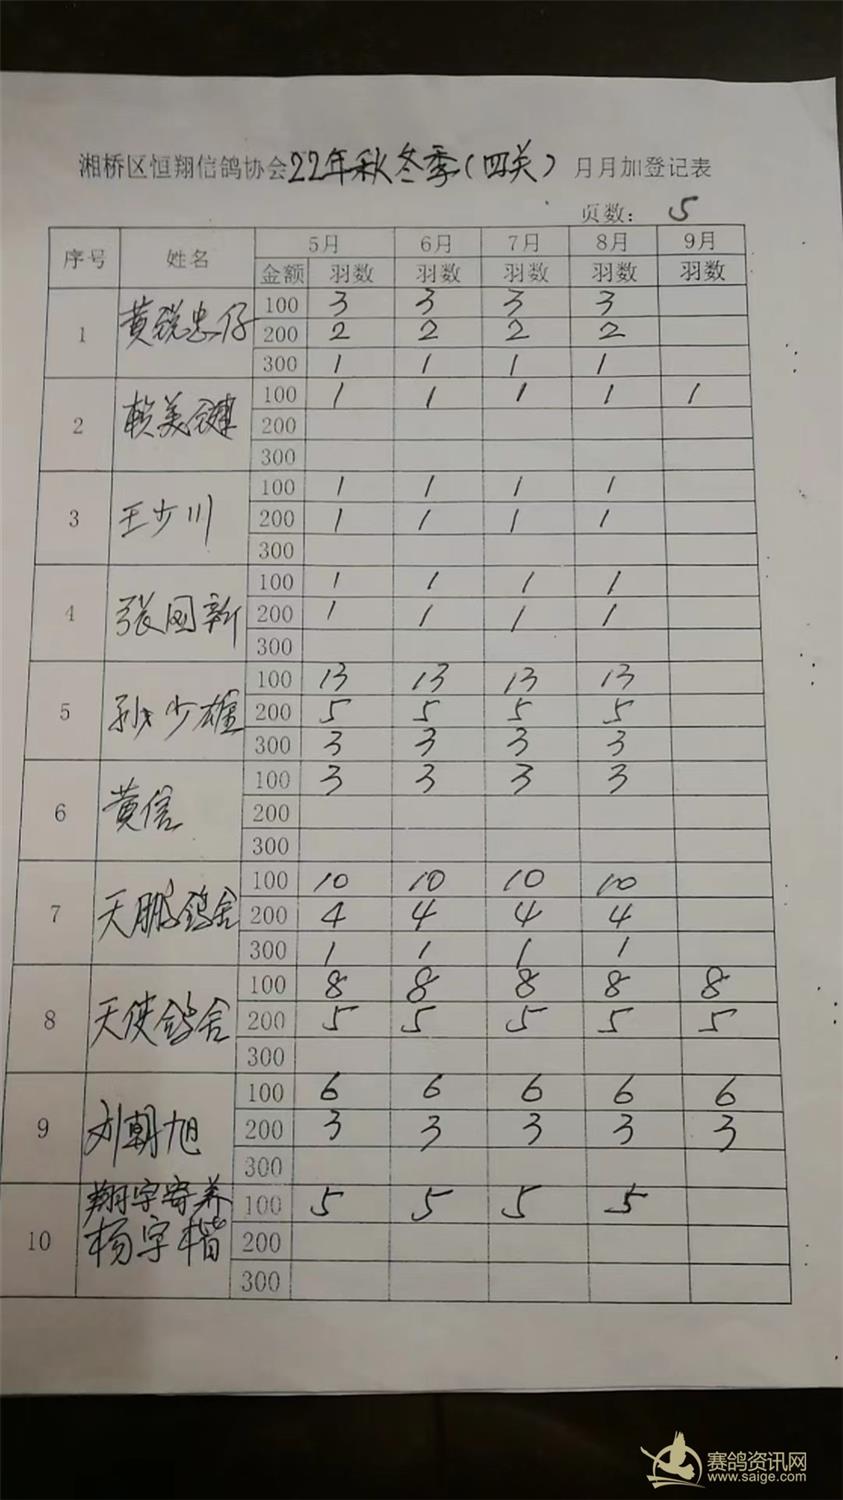 湘桥区恒翔信鸽协会22年秋冬季(四关) 月月加登记表
页数: 5
序号 姓名 5月 6月 7月 8月 9月
金额 羽数 羽数 羽数 羽数 羽数
1 黄锐忠仔 100 3 3 3 3
200 2 2 2 2
300 1 1 1 1
2 赖美键 100 1 1 1 1 1
200
300
3 王少川 100 1 1 1 1
200 1 1 1 1
300
4 张国新 100 1 1 1 1
200 1 1 1 1
300
5 孙少雄 100 13 13 13 13
200 5 5 5 5
300 3 3 3 3
6 黄信 100 3 3 3 3
200
300
7 天鹏鸽舍 100 10 10 10 10
200 4 4 4 4
300 1 1 1 1
8 天使鸽舍 100 8 8 8 8 8
200 5 5 5 5 5
300
9 刘朝旭 100 6 6 6 6 6
200 3 3 3 3 3
300
翔宇寄养 100 5 5 5 5
10 杨宇楷 200
300
赛鸽资讯网
www.saige.com